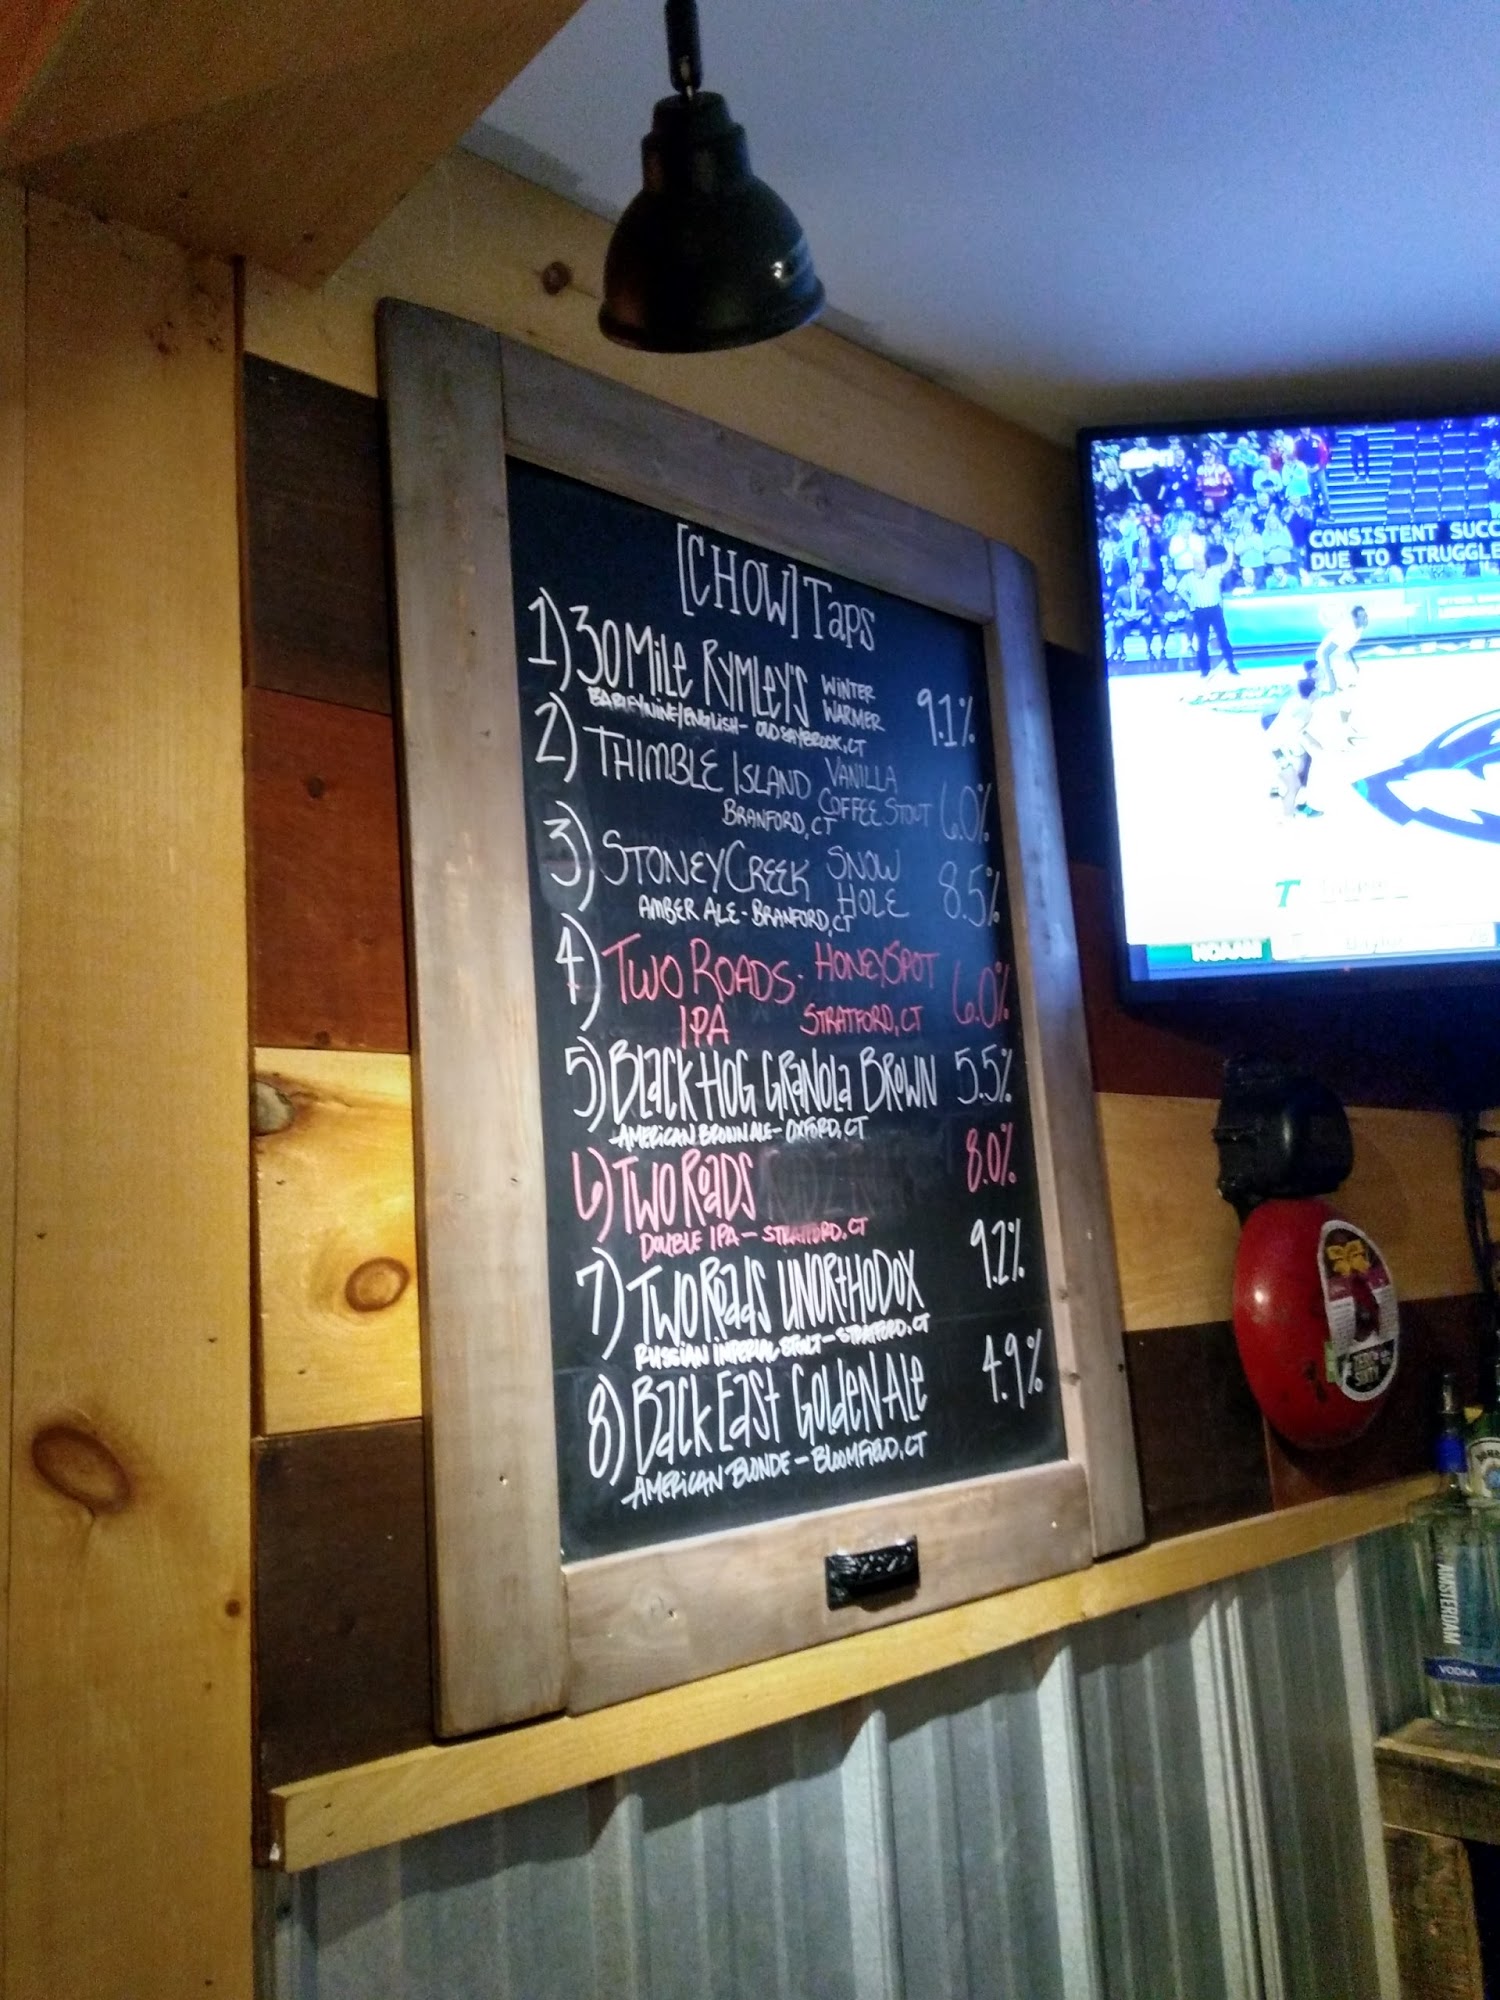 [CHOW] Taps
1) 30 Mile Rymley's Winter Warmer 9.1%
Barleywine/English - Old Saybrook, CT
2) Thimble Island Vanilla Coffee Stout 6.0%
Branford, CT
3) Stoney Creek Snow Hole 8.5%
Amber Ale - Branford, CT
4) Two Roads - Honeyspot 6.0%
IPA Stratford, CT
5) Black Hog Granola Brown 5.5%
-American Brown Ale - Oxford, CT
6) Two Roads 8.0%
Double IPA - Stratford, CT
7) Two Roads Unorthodox 9.2%
Russian Imperial Stout - Stratford, CT
8) Back East Golden Ale 4.9%
American Blonde - Bloomfield, CT
CONSISTENT SUCC
DUE TO STRUGGLE
T
AMSTERDAM
VODKA
SIXTY